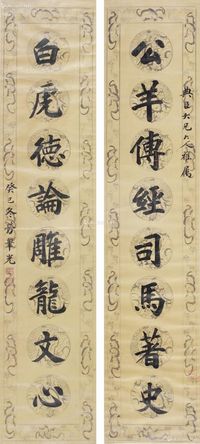 公羊傳經司馬著史
典臣大兄大人雅屬
白虎德論雕龍文心
癸巳冬